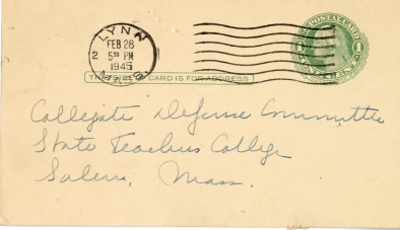 LYNN
2
FEB 28
5 30 PM
1945
MASS.
POSTAL CARD
1 ONE CENT 1
THIS SIDE OF CARD IS FOR ADDRESS
Collegiate Defense Committee
State Teachers College
Salem, Mass.